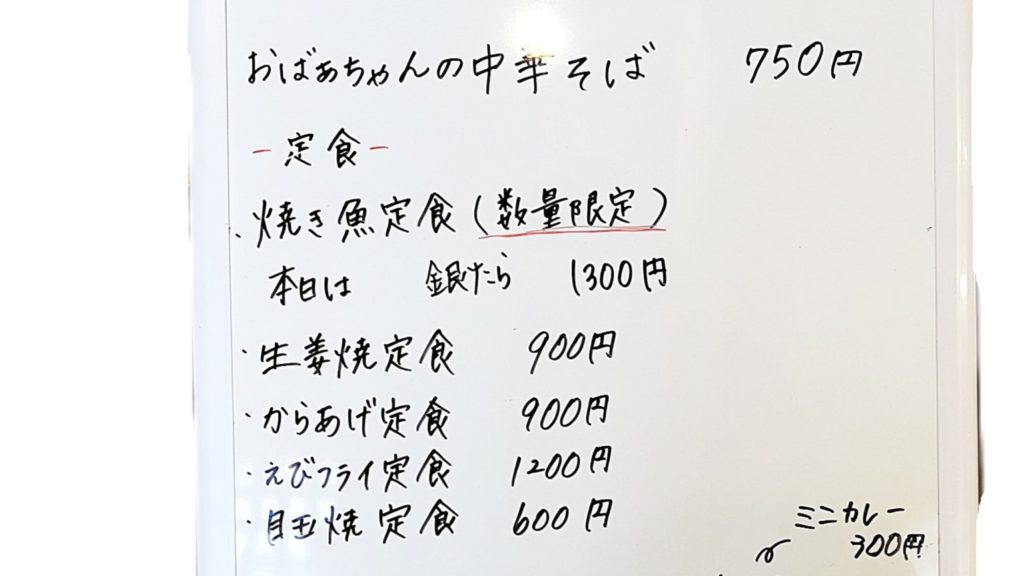 おばあちゃんの中華そば 750円
-定食-
、焼き魚定食(数量限定)
本日は 銀たら 1300円
・生姜焼定食 900円
・からあげ定食 900円
・えびフライ定食 1200円
・目玉焼定食 600円
ミニカレー
300円